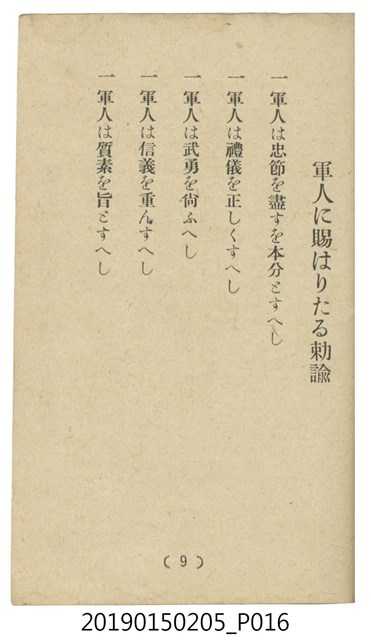 軍人に賜はりたる勅諭
一 軍人は忠節を盡すを本分とすへし
一 軍人は禮儀を正しくすへし
一 軍人は武勇を尙ふへし
一 軍人は信義を重んすへし
一 軍人は質素を旨とすへし
( 9 )
20190150205_P016